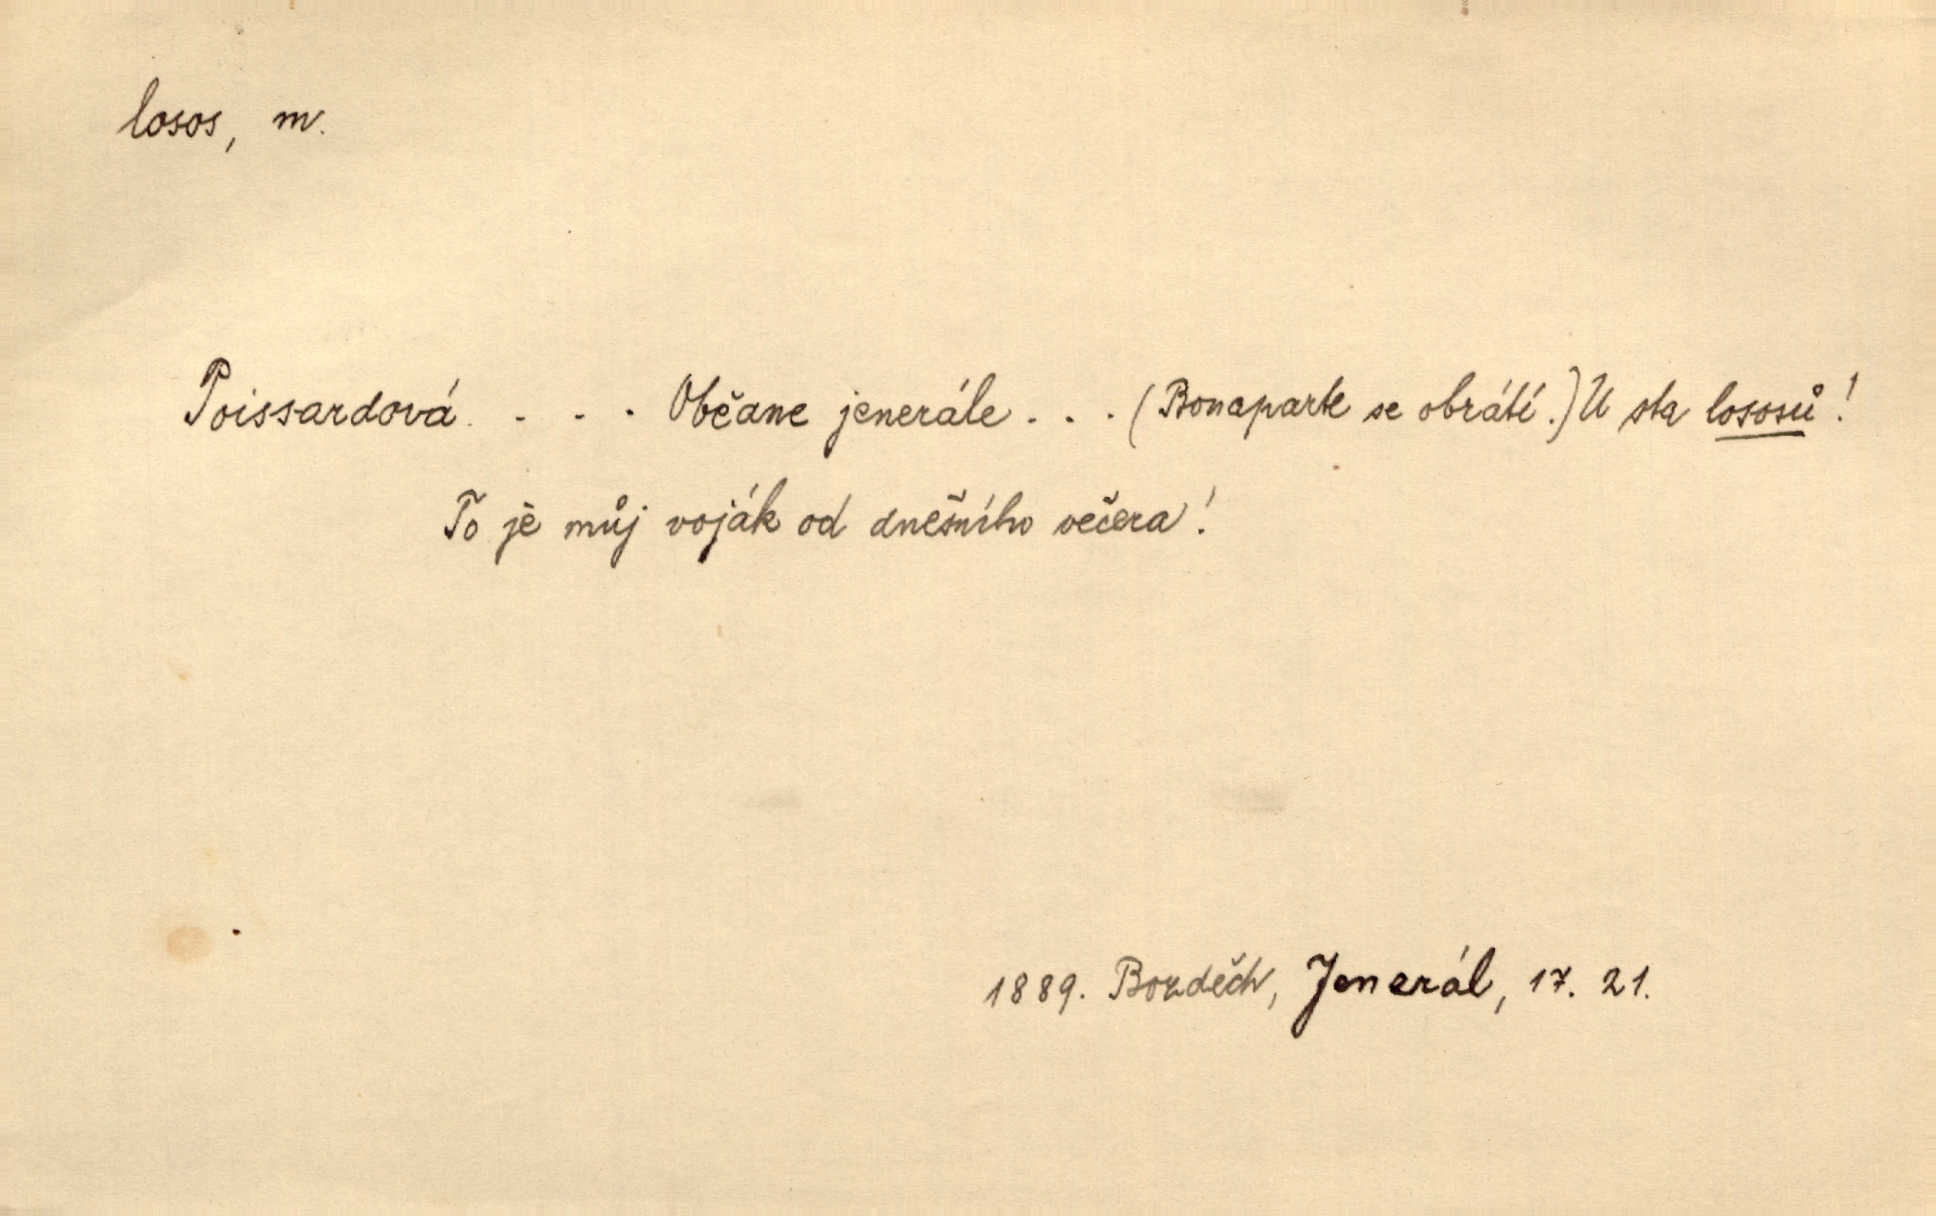 losos, m.
Poissardová. . . . Občane jenerále . . . (Bonaparte se obrátí.) U sta lososů!
To je můj voják od dnešního večera!
1889. Bozděch, Jenerál, 17. 21.